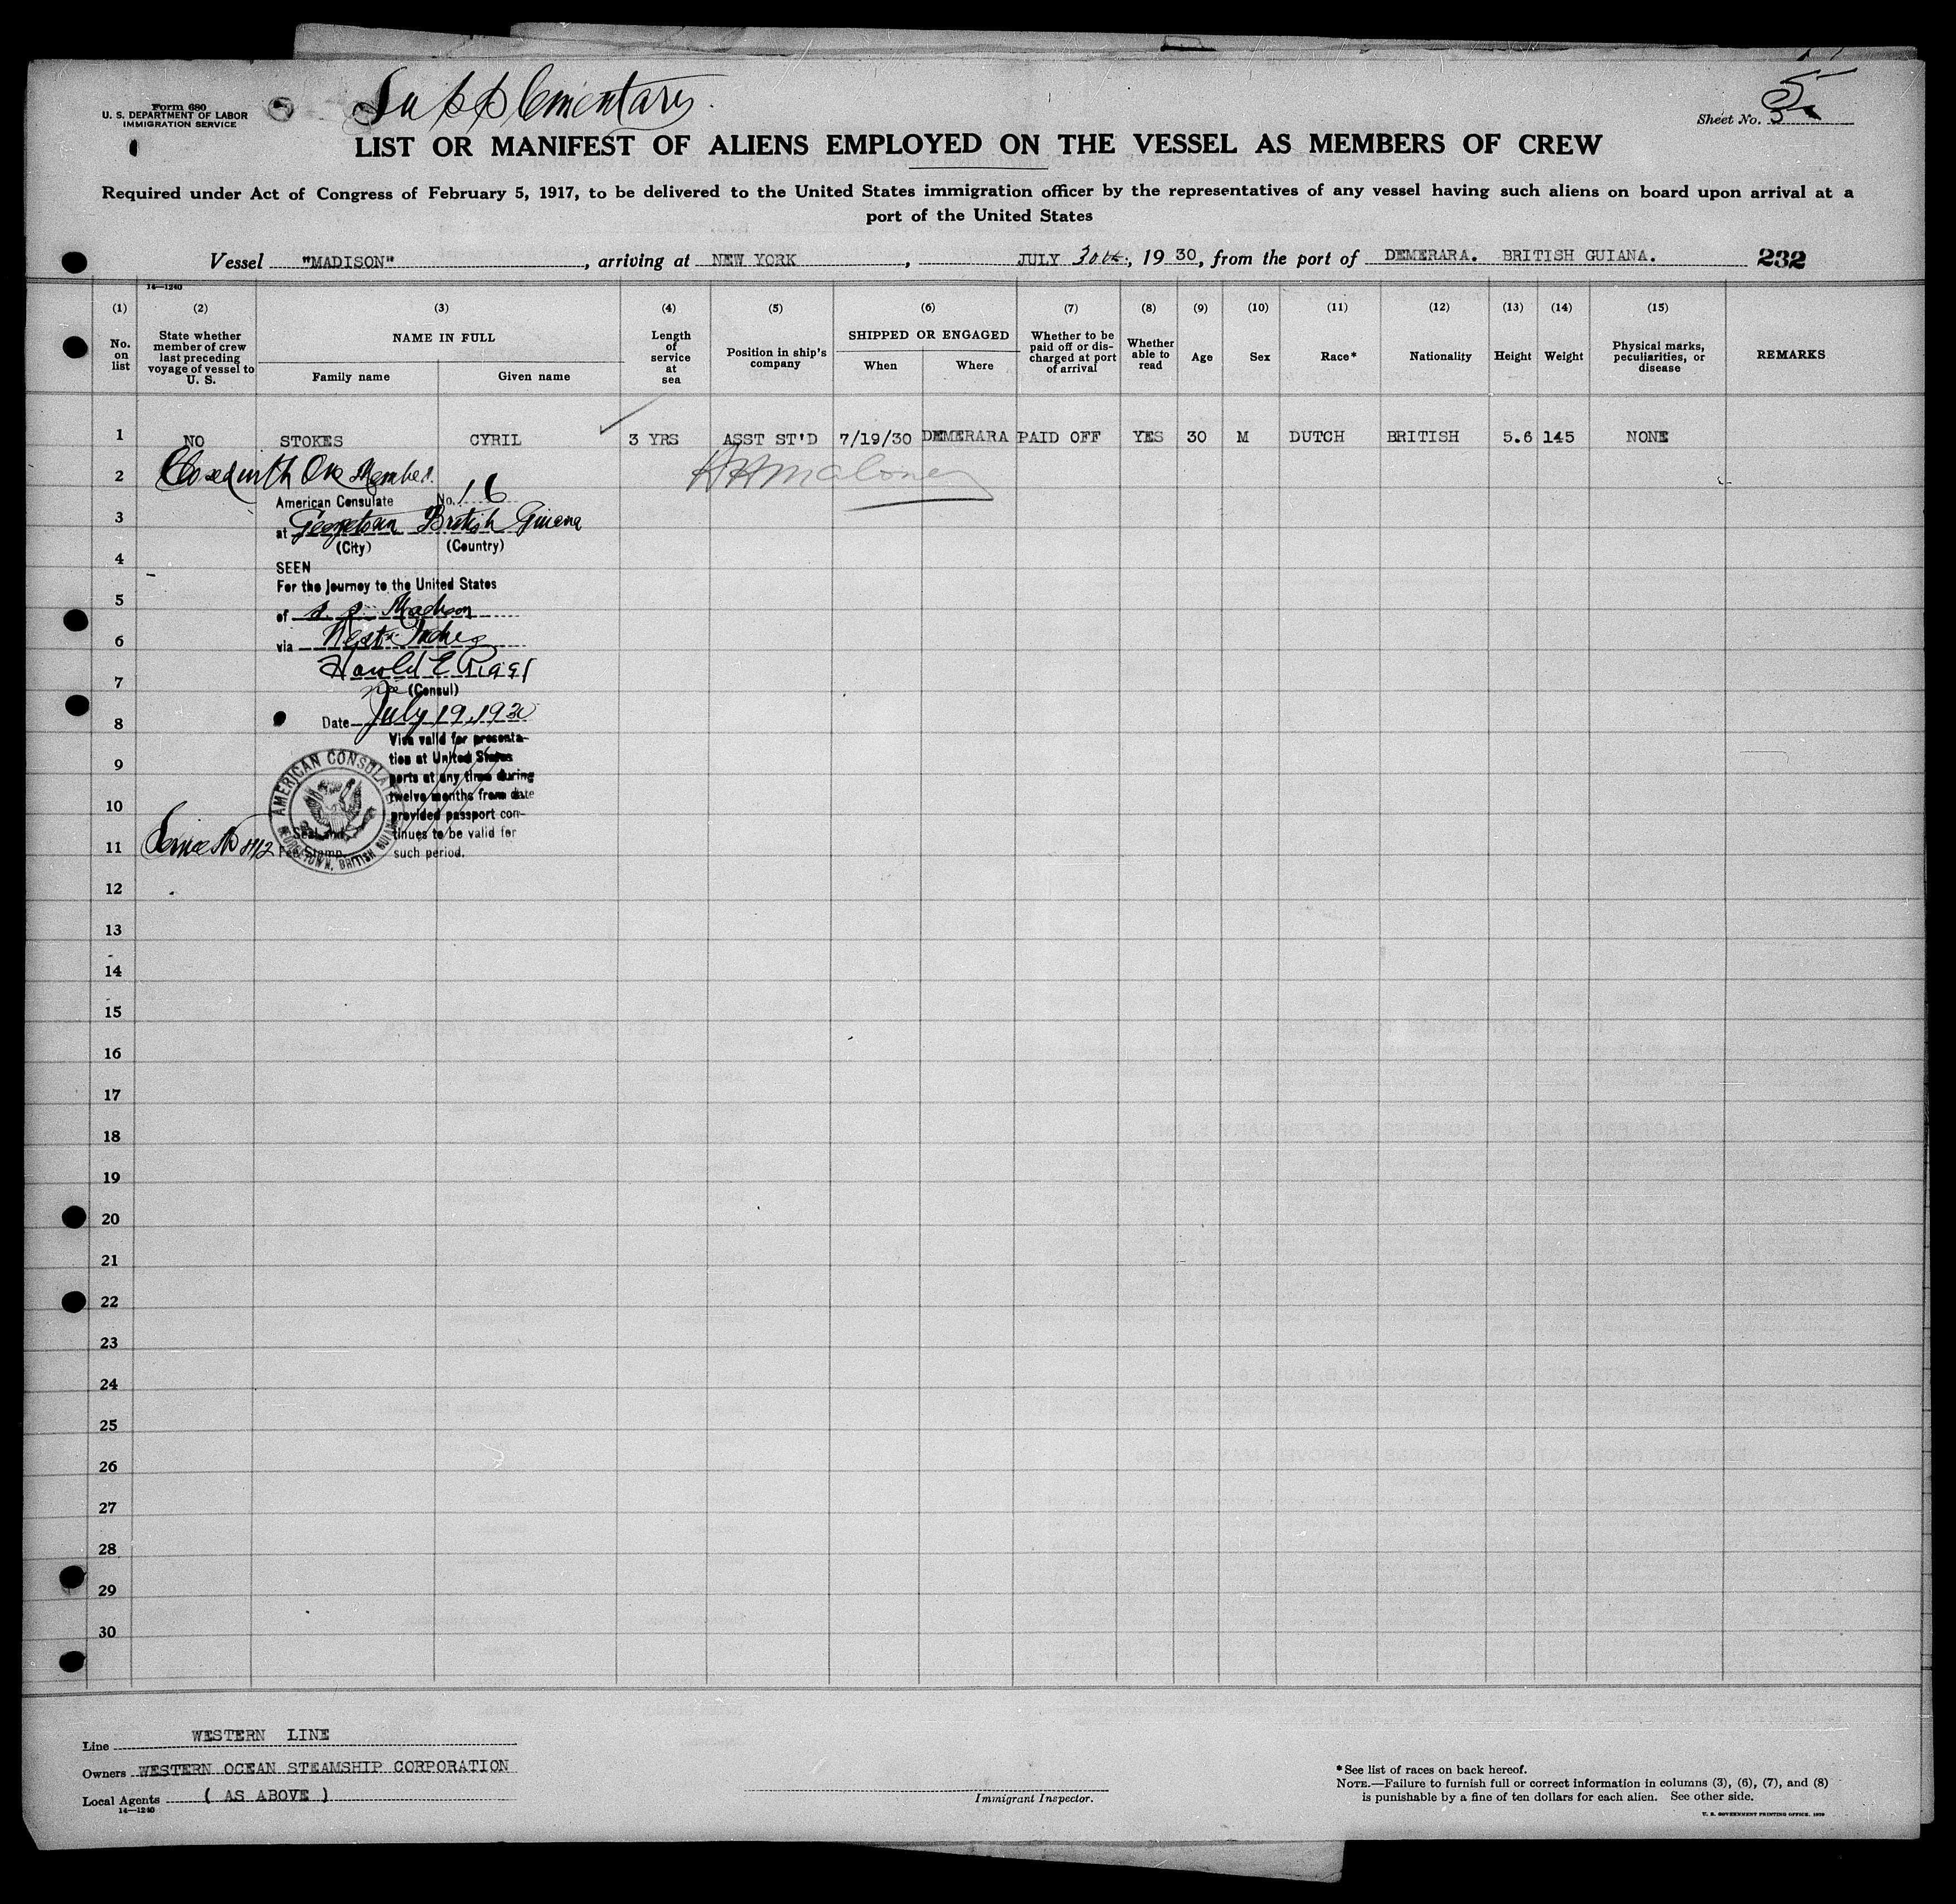 Supplementary.
Form 680
U. S. DEPARTMENT OF LABOR
IMMIGRATION SERVICE
Sheet No. 5
LIST OR MANIFEST OF ALIENS EMPLOYED ON THE VESSEL AS MEMBERS OF CREW
Required under Act of Congress of February 5, 1917, to be delivered to the United States immigration officer by the representatives of any vessel having such aliens on board upon arrival at a
port of the United States
Vessel "MADISON", arriving at NEW YORK, JULY 30th, 1930, from the port of DEMERARA. BRITISH GUIANA. 232
14—1240
(1) (2) (3) (4) (5) (6) (7) (8) (9) (10) (11) (12) (13) (14) (15)
No. on list
State whether member of crew last preceding voyage of vessel to U. S.
NAME IN FULL
Family name Given name
Length of service at sea
Position in ship's company
SHIPPED OR ENGAGED
When Where
Whether to be paid off or discharged at port of arrival
Whether able to read
Age
Sex
Race*
Nationality
Height
Weight
Physical marks, peculiarities, or disease
REMARKS
1 NO STOKES CYRIL 3 YRS ASST ST'D 7/19/30 DEMERARA PAID OFF YES 30 M DUTCH BRITISH 5.6 145 NONE
2 Closed with One Member.
American Consulate No. 16
3
at Georgetown British Guiana
(City) (Country)
4
SEEN
For the journey to the United States
5
of s. s. Madison
6
via West Indies
Harold E Riggs
7
(Consul)
8
Date July 19, 1930
Visa valid for presenta-
9
tion at United States
ports at any time during
twelve months from date
10
provided passport con-
tinues to be valid for
11
such period.
AMERICAN CONSULATE
GEORGETOWN, BRITISH GUIANA
Seal and
Fee Stamp
Service No
12
13
14
15
16
17
18
19
20
21
22
23
24
25
26
27
28
29
30
Line WESTERN LINE
Owners WESTERN OCEAN STEAMSHIP CORPORATION
Local Agents ( AS ABOVE )
14—1240
Immigrant Inspector.
*See list of races on back hereof.
NOTE.—Failure to furnish full or correct information in columns (3), (6), (7), and (8)
is punishable by a fine of ten dollars for each alien. See other side.
U. S. GOVERNMENT PRINTING OFFICE